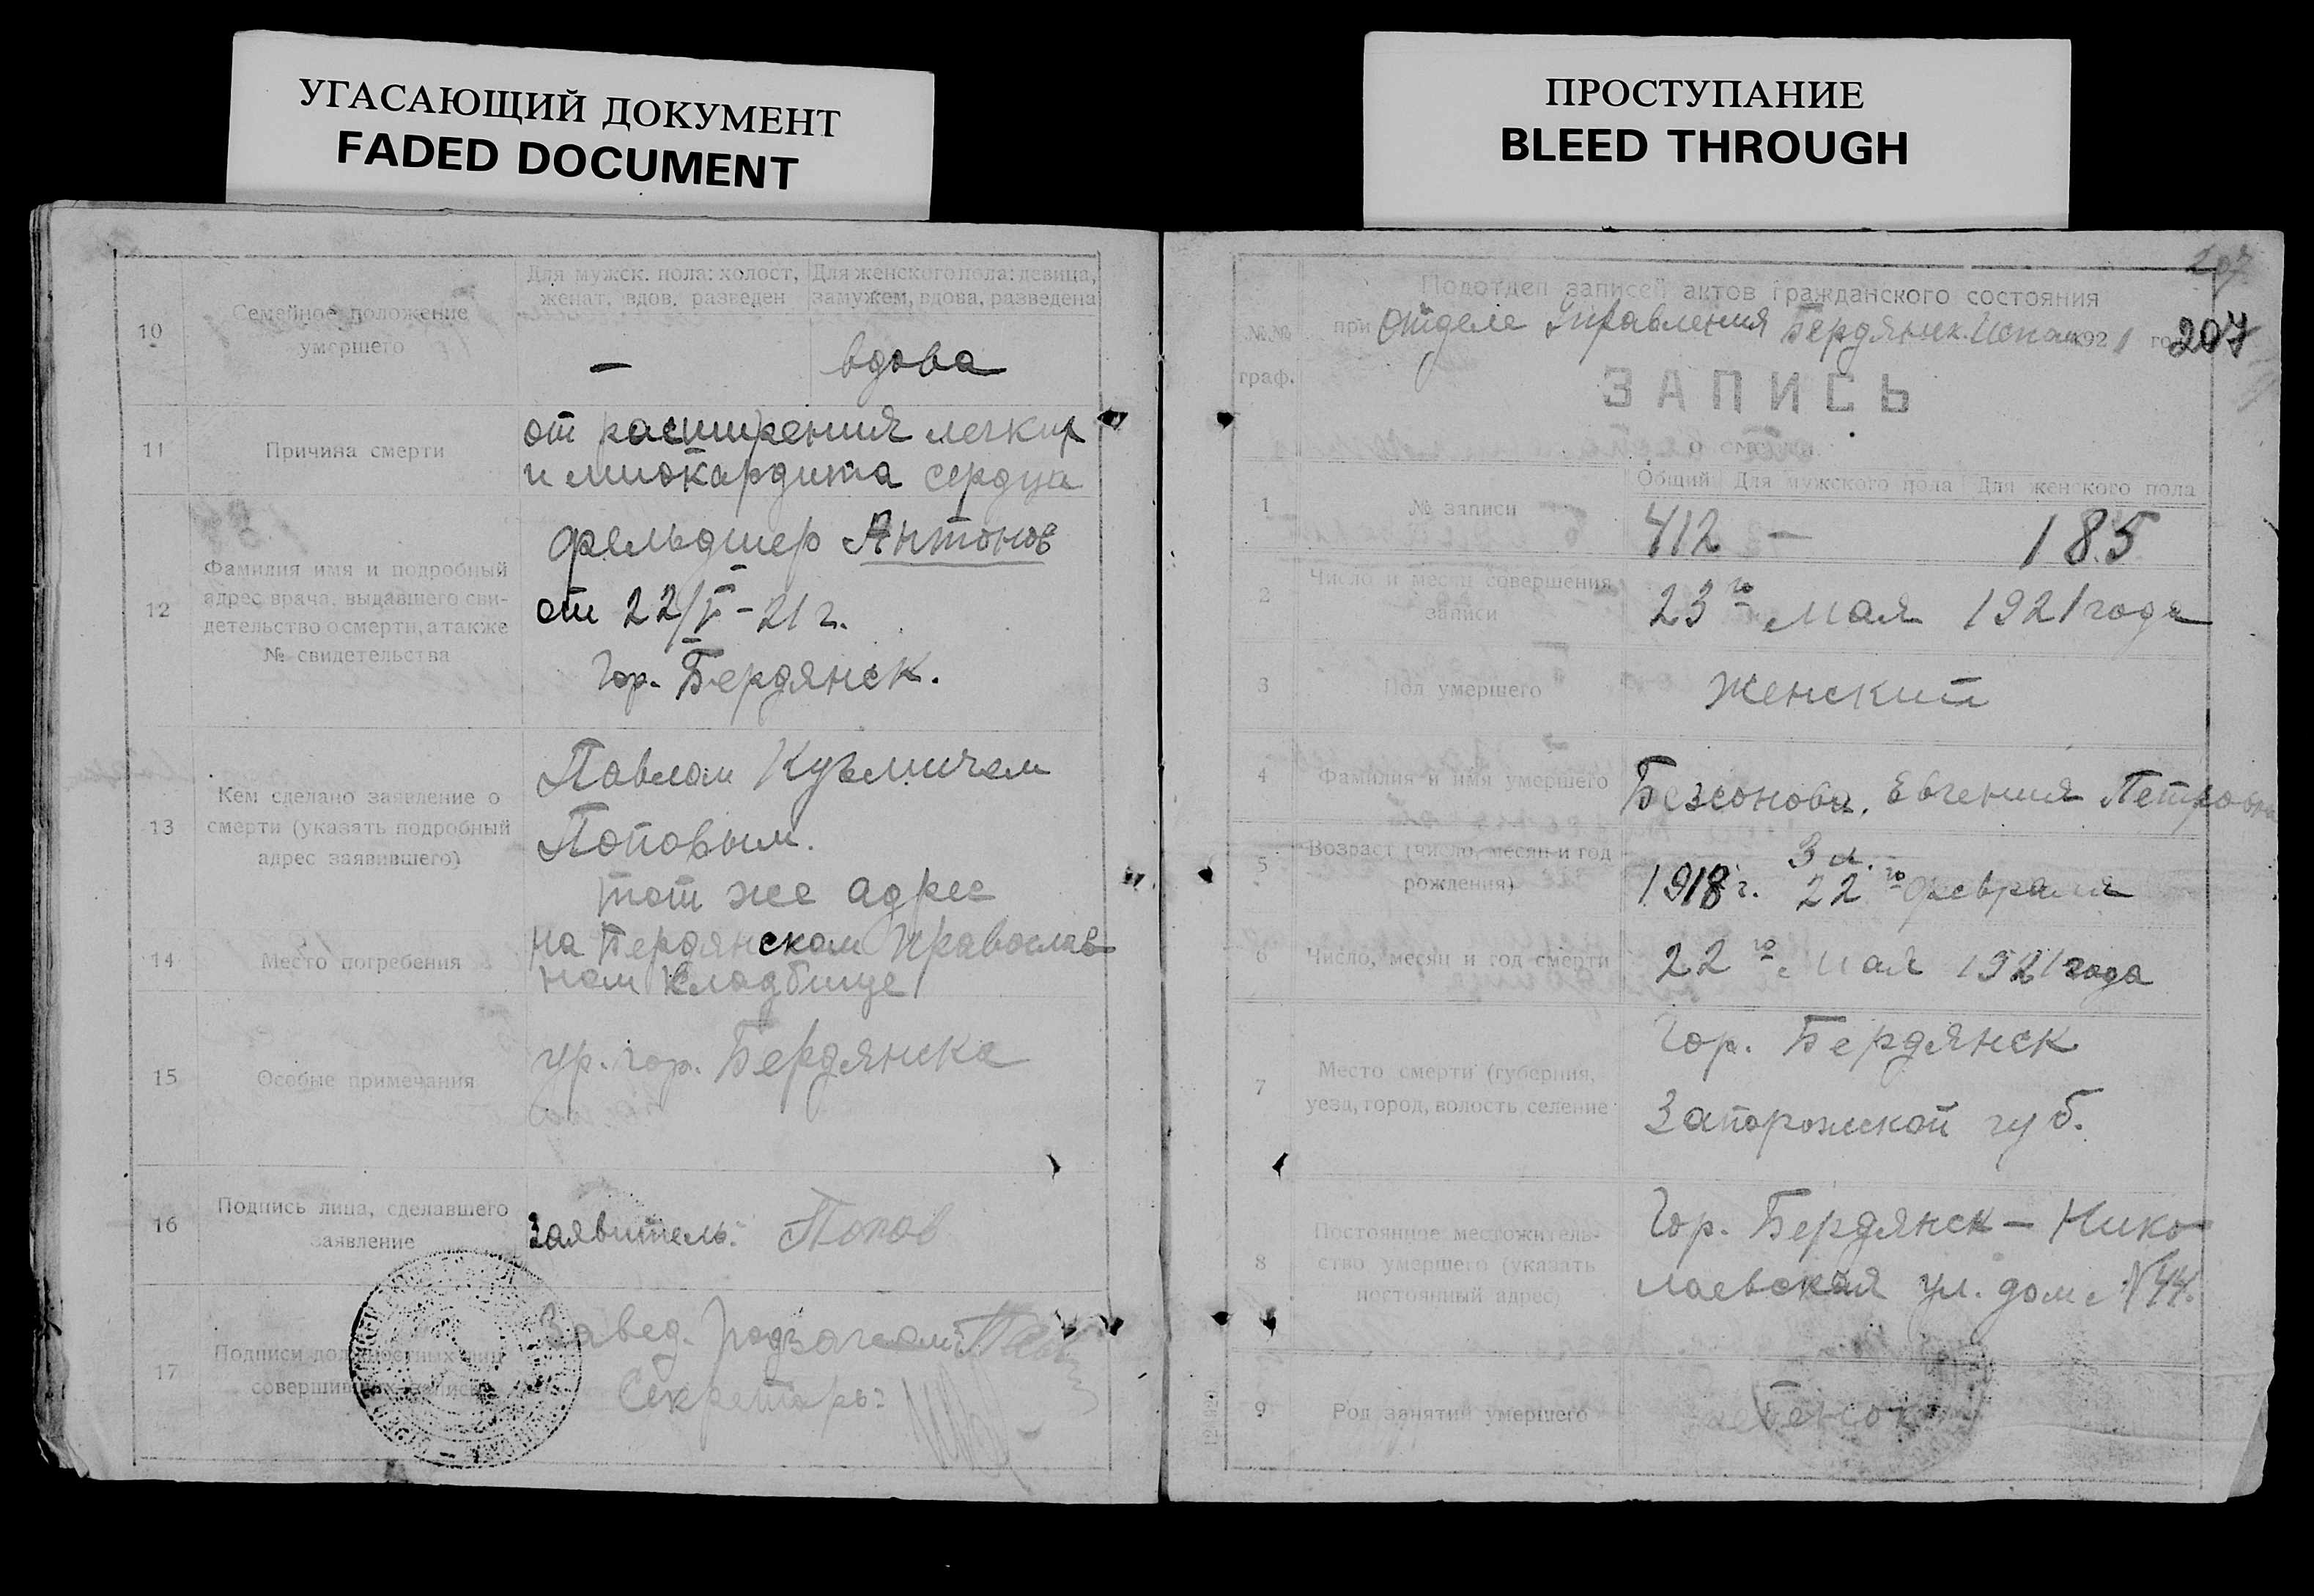 УГАСАЮЩИЙ ДОКУМЕНТ
FADED DOCUMENT
10
Семейное положение
умершего
Для мужск. пола: холост,
женат, вдов, разведен
Для женского пола: девица,
замужем, вдова, разведена
—
вдова
11
Причина смерти
от расширения легких
и миокардита сердца
12
Фамилия имя и подробный
адрес врача, выдавшего сви-
детельство о смерти, а также
№ свидетельства
фельдшер Антонов
от 22/V-21 г.
Гор. Бердянск.
13
Кем сделано заявление о
смерти (указать подробный
адрес заявившего)
Павлом Кузьмичем
Поповым.
тот же адрес
14
Место погребения
на Бердянском Православ
ном кладбище
15
Особые примечания
ур. гор. Бердянска
16
Подпись лица, сделавшего
заявление
Заявитель: Попов
17
Подписи должностных лиц
совершивших запись
Завед.
Секретарь:
ПРОСТУПАНИЕ
BLEED THROUGH
207
№№
граф.
Подотдел записей актов гражданского состояния
при Отделе Управления Бердянск. Испол 1921 го
207
ЗАПИСЬ
о смерти
1
№ записи
Общий Для мужского пола Для женского пола
412 — 185
2
Число и месяц совершения
записи
23го мая 1921 года
3
Пол умершего
Женский
4
Фамилия и имя умершего
Безсонова, Евгения Петровна
5
Возраст (число, месяц и год
рождения)
3 л.
1918 г. 22го февраля
6
Число, месяц и год смерти
22го мая 1921 года
7
Место смерти (губерния,
уезд, город, волость, селение
Гор. Бердянск
Запорожской губ.
8
Постоянное местожитель-
ство умершего (указать
постоянный адрес)
Гор. Бердянск — Нико
лаевская ул. дом № 44.
9
Род занятий умершего